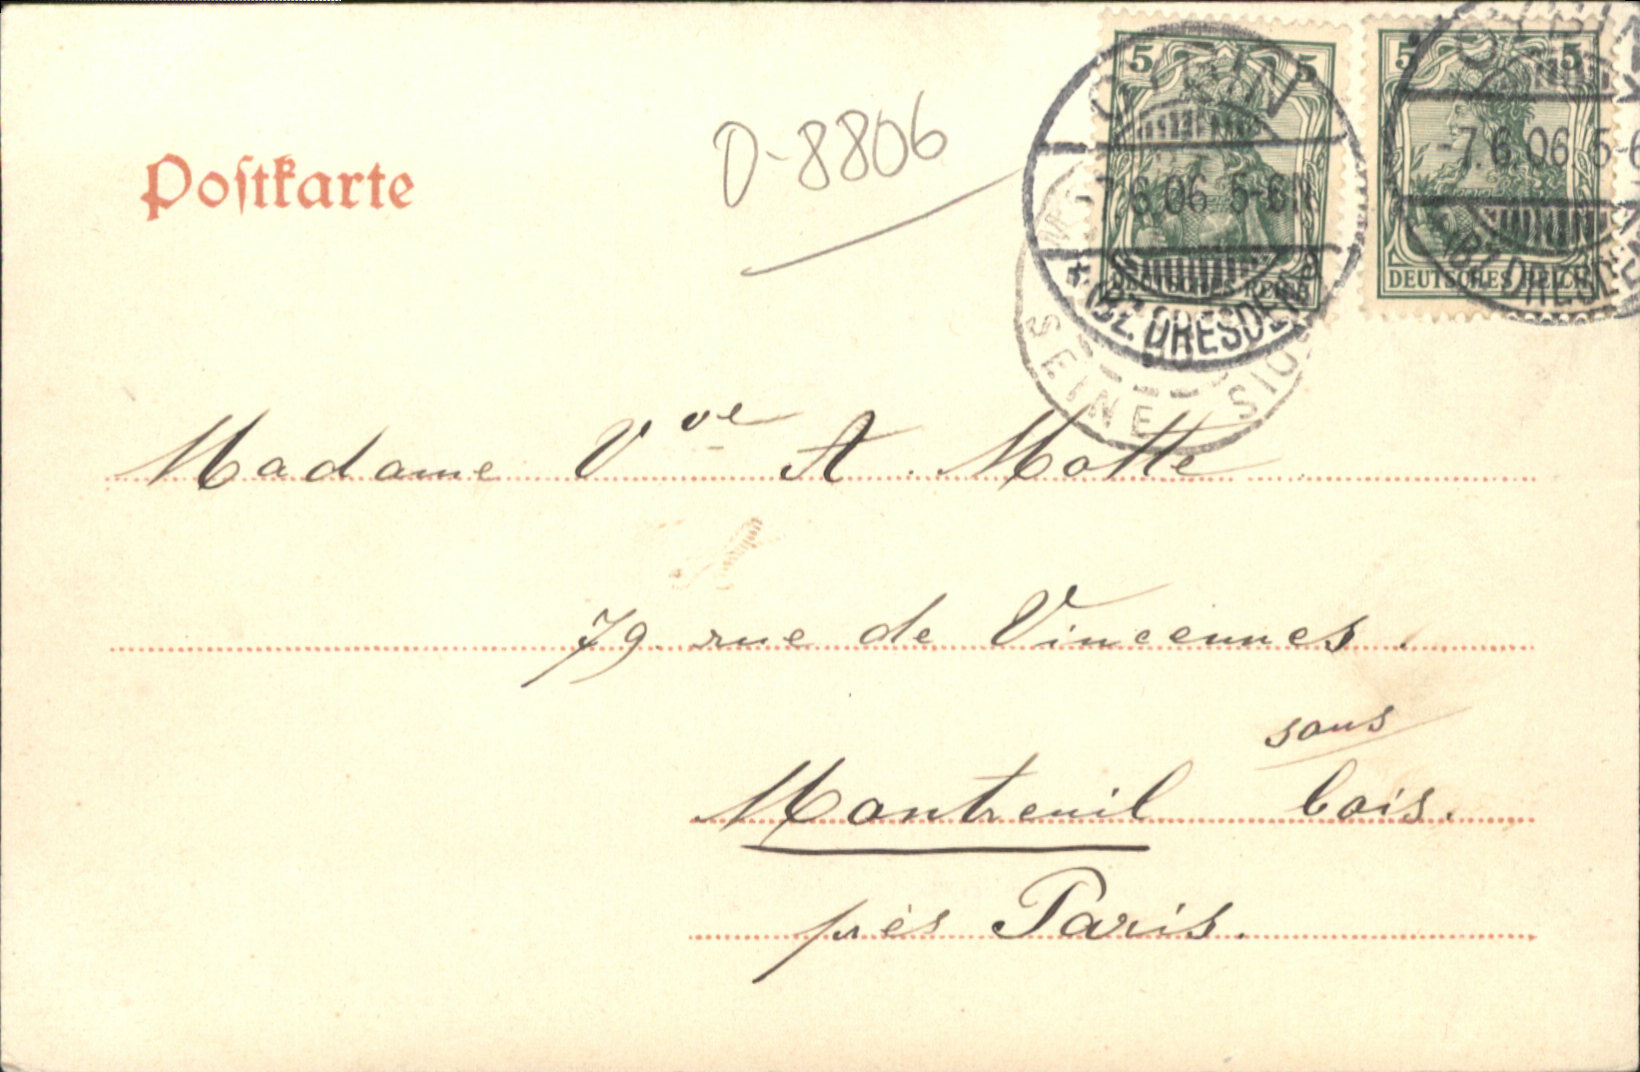 Postkarte
D-8806
5 5
DEUTSCHES REICH
OYBIN
7.6.06 5-6N
* (BZ. DRESDEN)
5 5
DEUTSCHES REICH
OYBIN
-7.6.06 5-6
(BZ. DRESDEN
SEINE
Madame Vve A. Motte
79 rue de Vincennes.
sous
Montreuil bois.
près Paris.